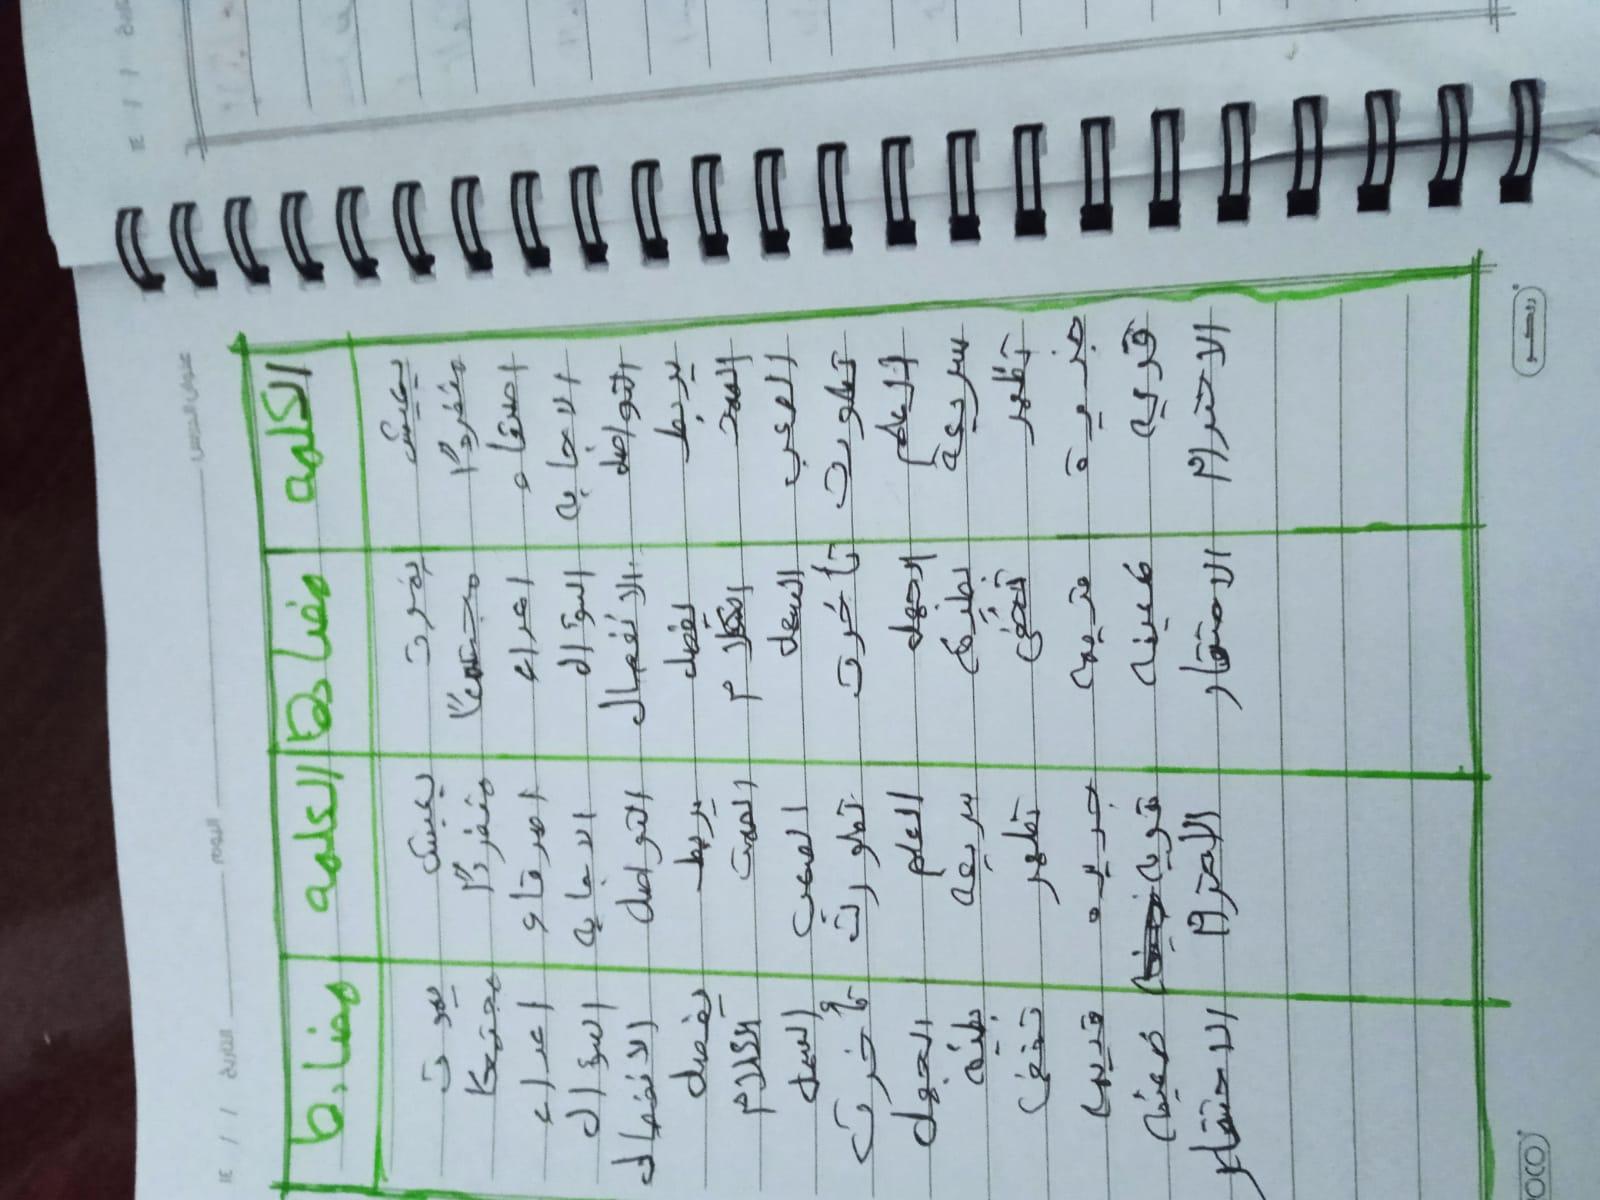 الكلمه مضادها الكلمه مضادها
يعيش يموت يعيش يموت
منفردًا مجتمعًا منفردًا مجتمعًا
اصدقاء اعداء اصدقاء اعداء
الاجابه السؤال الاجابه السؤال
التواصل الانفصال التواصل الانفصال
يربط يفصل يربط يفصل
الصمت الكلام الصمت الكلام
الصعب السهل الصعب السهل
تطورت تأخرت تطورت تأخرت
العلم الجهل العلم الجهل
سريعة بطيئه سريعه بطيئه
تظهر تختفي تظهر تختفي
قويه ضعيفه قويه ضعيفه
الاحترام الاحتقار الاحترام الاحتقار